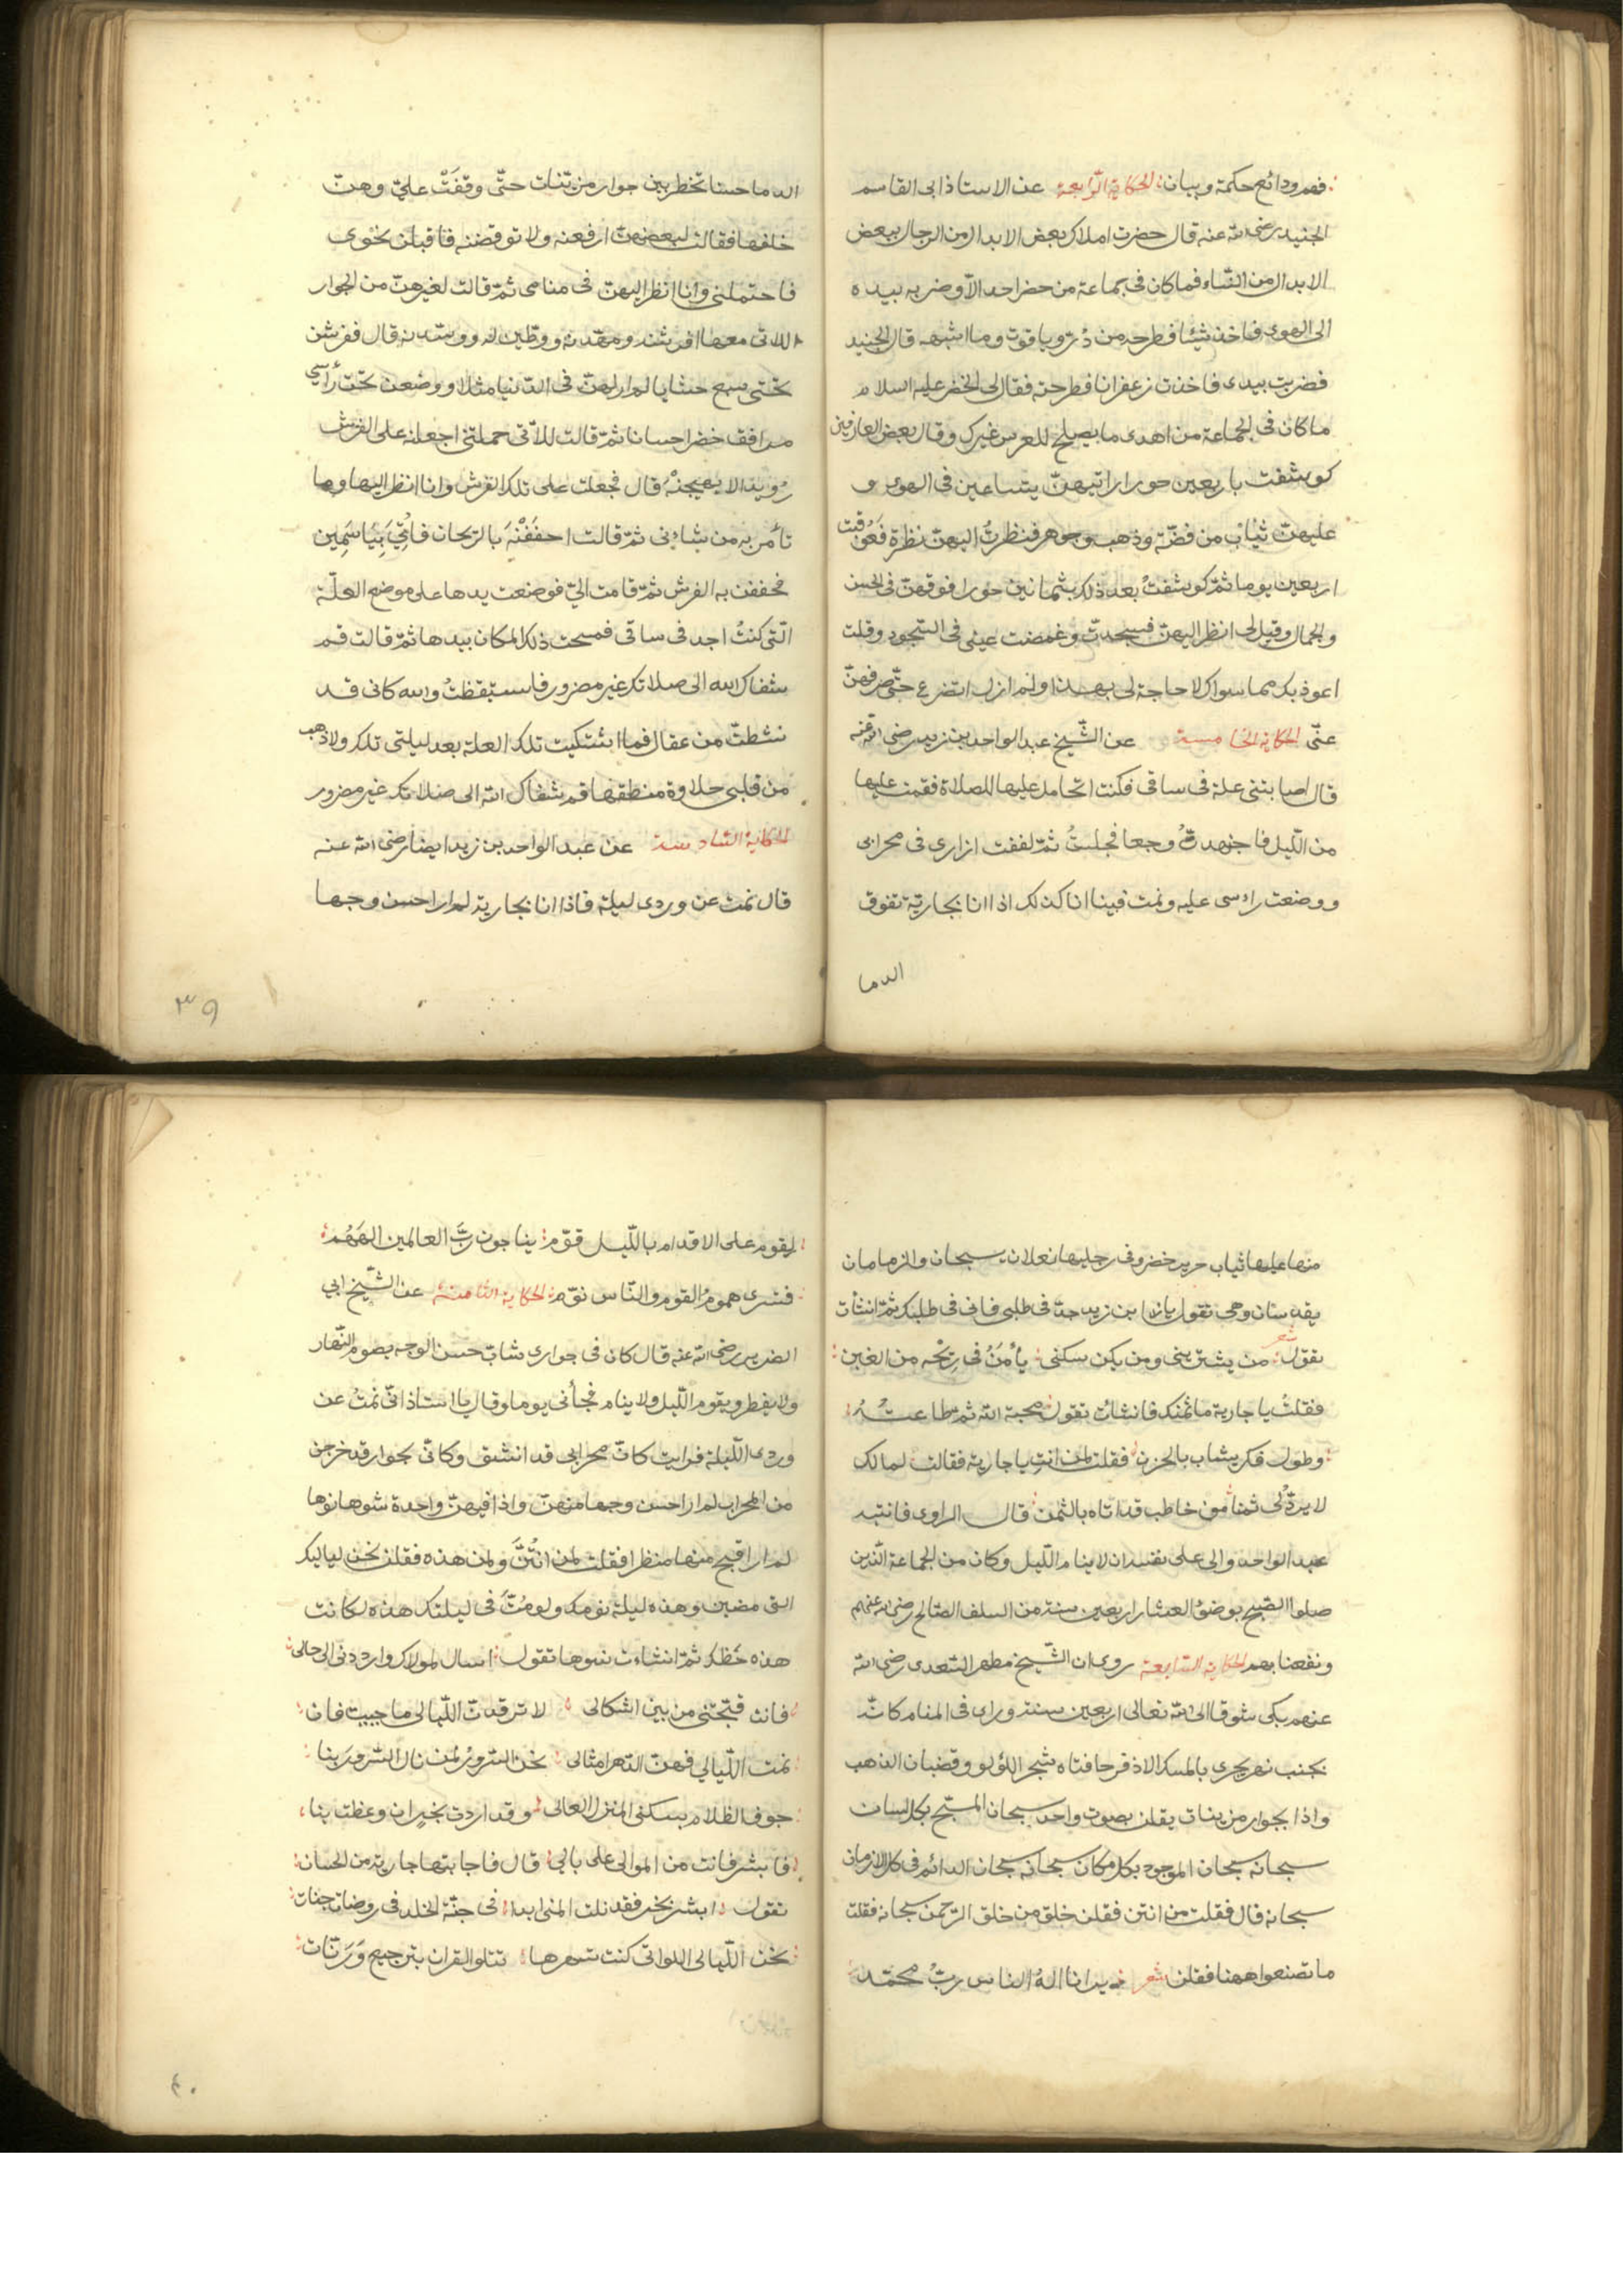 فهم ودائع حكمة وبيان الحكاية الرابعة عن الاستاذ ابي القاسم
الجنيد رضى الله عنه قال حضرت املاك بعض الابدال من الرجال ببعض
الابدال من النساء فما كان فى جماعة من حضر احد الا وضرب بيده
الى الهوى فاخذ شيئا فطرحه من در وياقوت وما اشبهه قال الجنيد
فضربت بيدى فاخذت زعفرانا فطرحته فقال لى الخضر عليه اسلام
ما كان فى الجماعة من اهدى ما يصلح للعرس غيرك وقال بعض العارفين
كوشفت باربعين حورا رايتهن يتساعين فى الهوى و
عليهن ثياب من فضة وذهب وجوهر فنظرت اليهن نظرة فعوقبت
اربعين يوما ثم كوشفت بعد ذلك بثمانين حورا فوقهن فى الحسن
والجمال وقيل لى انظر اليهن فسجدت وغمضت عينى فى السجود وقلت
اعوذ بك مما سواك لا حاجة لى بهذا ولم ازل اتضرع حتى صرفهن
عنى الحكاية الخامسة عن الشيخ عبد الواحد بن زيد رضى الله عنه
قال اصابتنى علة فى ساقى فكنت اتحامل عليها للصلاة فقمت عليها
من الليل فاجهدت وجعا فجلست ثم لففت ازارى فى محرابى
ووضعت راسى عليه ونمت فبينا انا كذلك اذا انا بجارية تفوق
الدما
الدما حسنا تخطر بين جوار مزينات حتى وقفت على وهن
خلفها فقالت لبعضهن ارفعنه ولا توقضنه فاقبلن نحوى
فاحتملنى وانا انظر اليهن فى منامى ثم قالت لغيرهن من الجوار
اللاتى معها افرشنه ومهدنه ووطين له ووسدنه قال ففرشن
تحتى سبع حشايا لم ار لهن فى الدنيا مثلا ووضعن تحت رأسى
مرافق خضرا حسانا ثم قالت للاتى حملتنى اجعلنه على الفرش
رويدا لا يهيجنه قال فجعلت على تلك الفرش وانا انظر اليها وما
تأمر به من شانى ثم قالت احففنه بالريحان فاتى بياسمين
فحففن به الفرش ثم قامت الى فوضعت يدها على موضع العلة
التى كنت اجد فى ساقى فمسحت ذلك المكان بيدها ثم قالت قم
شفاك الله الى صلاتك غير مضرور فاستيقظت والله كانى قد
نشطت من عقال فما اشتكيت تلك العلة بعد ليلتى تلك ولا ذهب
من قلبى حلاوة منطقها قم شفاك الله الى صلاتك غير مضرور
الحكاية السادسة عن عبد الواحد بن زيد ايضا رضى الله عنه
قال نمت عن وردى ليلة فاذا انا بجارية لم ار احسن وجها
٣٩
منها عليها ثياب حرير خضر وفى رجليها نعلان يسبحان والزمامان
يقدسان وهى تقول يا ابن زيد جد فى طلبى فانى فى طلبك ثم انشأت
تقول شعر من يشترينى ومن يكن سكنى يأمن فى ربحه من الغبن
فقلت يا جارية ما ثمنك فانشأت تقول محبة الله ثم طاعته
وطول فكر يشاب بالحزن فقلت لمن انت يا جارية فقالت لمالك
لا يرد لى ثمنا من خاطب قد اتاه بالثمن قال الراوى فانتبه
عبد الواحد والى على نفسه ان لا ينام الليل وكان من الجماعة الذين
صلوا الصبح بوضوء العشا اربعين سنة من السلف الصالح رضى الله عنهم
ونفعنا بهم الحكاية السابعة روى ان الشيخ مطهر السعدى رضى الله
عنهم بكى شوقا الى الله تعالى اربعين سنة وراى فى المنام كانه
بجنب نهر يجرى بالمسك الاذفر حافتاه شجر اللؤلو وقضبان الذهب
واذا بجوار مزينات يقلن بصوت واحد سبحان المسبح بكل لسان
سبحانه سبحان الموجود بكل مكان سبحانه سبحان الدائم فى كل الازمان
سبحانه قال فقلت من انتن فقلن خلق من خلق الرحمن سبحانه فقلت
ما تصنعوا ههنا فقلن شعر ذرانا اله الناس رب محمد
لقوم على الاقدام بالليل قوم يناجون رب العالمين الههم
فتسرى هموم القوم والناس نوم الحكاية الثامنة عن الشيخ ابى
الضرير رضى الله عنه قال كان فى جوارى شاب حسن الوجه يصوم النهار
ولا يفطر ويقوم الليل ولا ينام فجأنى يوما وقال يا استاذ انى نمت عن
وردى الليلة فرايت كان محرابى قد انشق وكانى بجوار قد خرجن
من المحراب لم ار احسن وجها منهن واذا فيهن واحدة شوها نوها
لم ار اقبح منها منظرا فقلت لمن انتن ولمن هذه فقلن نحن لياليك
التى مضين وهذه ليلة نومك ولو مت فى ليلتك هذه لكانت
هذه حظك ثم انشات شوها تقول اسال لمولاك وارددنى الى حالى
فانت قبحتنى من بين اشكالى لا ترقدن الليالى ما حييت فان
نمت الليالى فهن الدهر امثالى نحن السرور لمن نال السرور بنا
جوف الظلام بسكنى المنزل العالى وقد اردت بخير ان وعظت بنا
فابشر فانت من الموالى على بالى قال فاجابتها جارية من الحسان
تقول ابشر بخير فقد نلت المنى ابدا فى جنة الخلد فى روضات جنات
نحن الليالى اللواتى كنت تسهرها تتلو القران بترجيع ورنات
٤٠